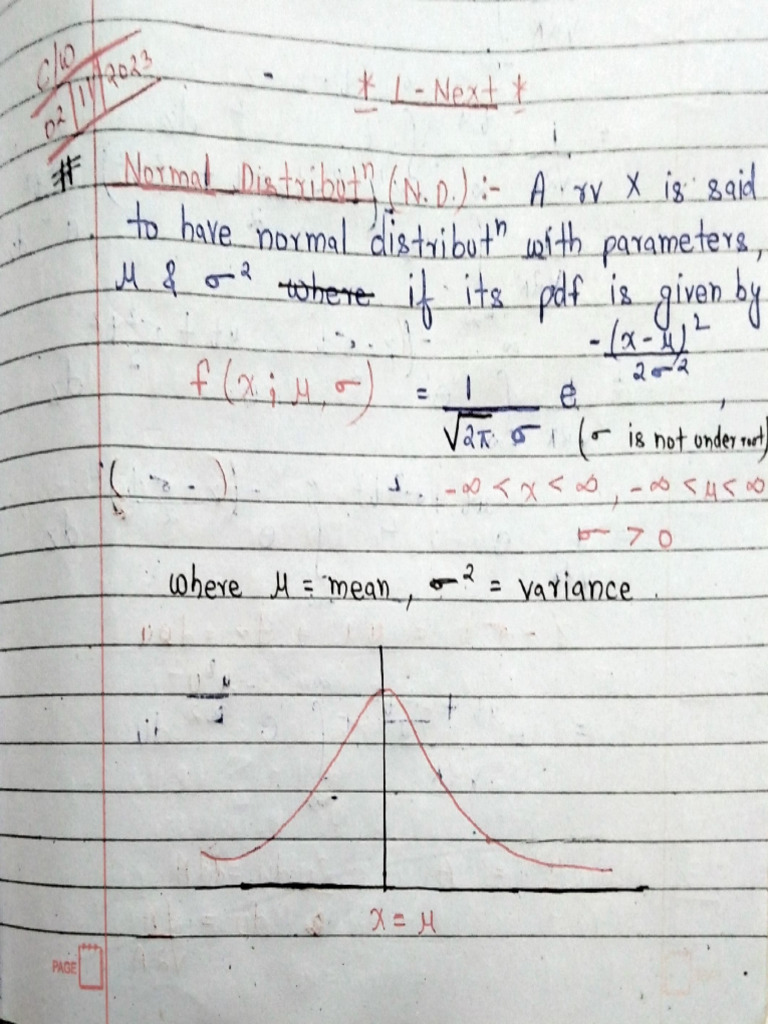 C/W
02/11/2023
* L-Next *
# Normal Distributⁿ (N.D.) :- A rv X is said
to have normal distributⁿ with parameters,
μ & σ² ~~where~~ if its pdf is given by
f(x; μ, σ) = 1/(√2π σ) e^(-(x-μ)²/2σ²) ,
(σ is not under root)
-∞ < x < ∞, -∞ < μ < ∞
σ > 0
where μ = mean, σ² = variance.
x = μ
PAGE